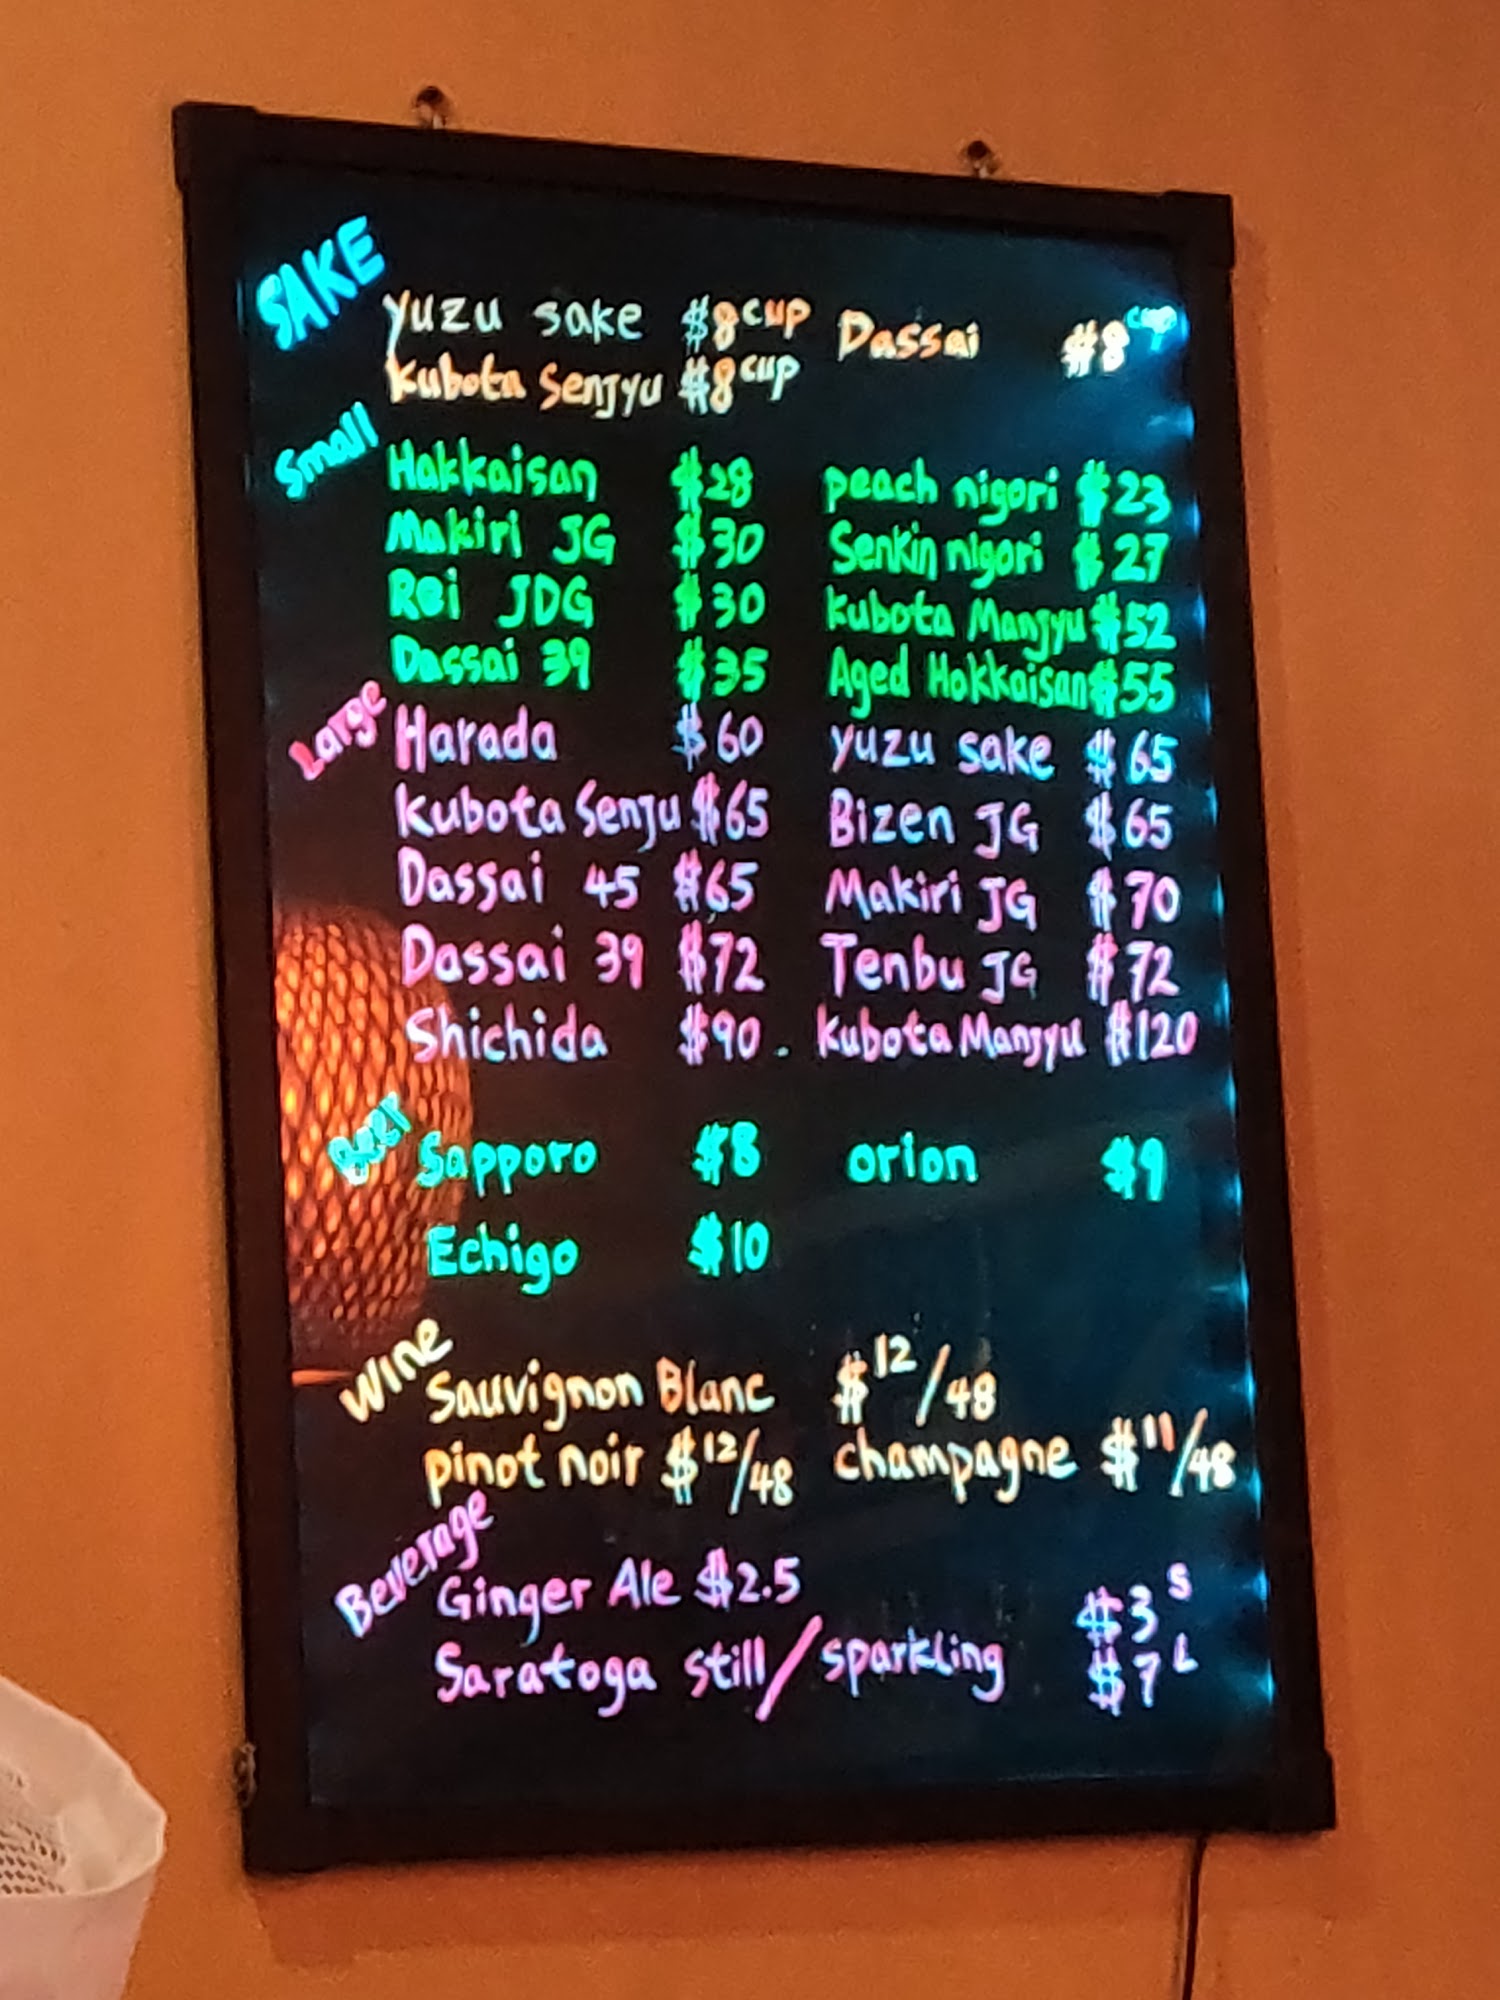 SAKE
yuzu sake $8 cup Dassai $8 cup
Kubota Senjyu $8 cup
Small
Hakkaisan $28 peach nigori $23
Makiri JG $30 Senkin nigori $27
Rei JDG $30 Kubota Manjyu $52
Dassai 39 $35 Aged Hokkaisan $55
Large
Harada $60 yuzu sake $65
Kubota Senju $65 Bizen JG $65
Dassai 45 $65 Makiri JG $70
Dassai 39 $72 Tenbu JG $72
Shichida $90. Kubota Manjyu $120
Beer
Sapporo $8 orion $9
Echigo $10
Wine
Sauvignon Blanc $12/48
pinot noir $12/48 champagne $11/48
Beverage
Ginger Ale $2.5
Saratoga still/sparkling $3 S
$7 L